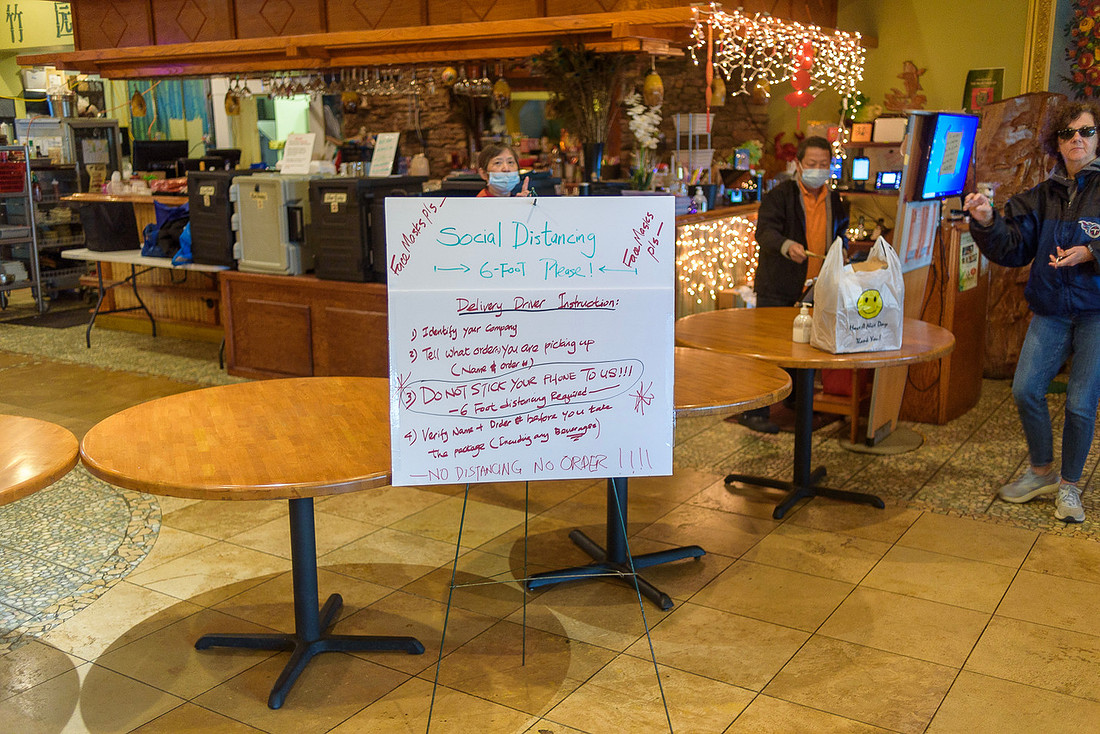 竹园
Face Masks pls -
Face Masks pls -
Social Distancing
6-Foot Please!
Delivery Driver Instruction:
1) Identify your Company
2) Tell what orders you are picking up
(Name & order #)
3) DO NOT STICK YOUR PHONE TO US!!!
- 6 Foot distancing Required -
4) Verify Name + Order # before you take
The package (Including any Beverages)
- NO DISTANCING NO ORDER !!!!
Have A Nice Day
Thank You!